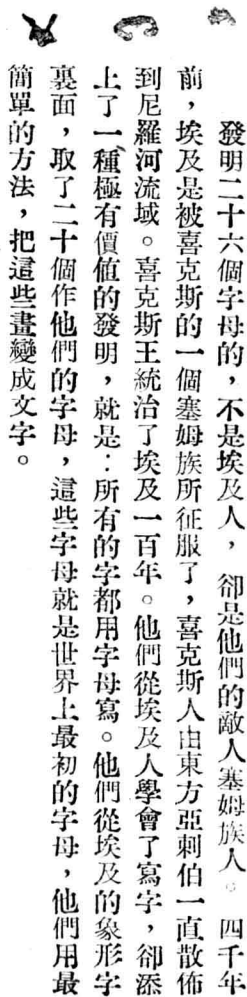 發明二十六個字母的，不是埃及人，卻是他們的敵人塞姆族人。四千年
前，埃及是被喜克斯的一個塞姆族所征服了，喜克斯人由東方亞剌伯一直散佈
到尼羅河流域。喜克斯王統治了埃及一百年。他們從埃及人學會了寫字，卻添
上了一種極有價值的發明，就是：所有的字都用字母寫。他們從埃及的象形字
裏面，取了二十個作他們的字母，這些字母就是世界上最初的字母，他們用最
簡單的方法，把這些畫變成文字。